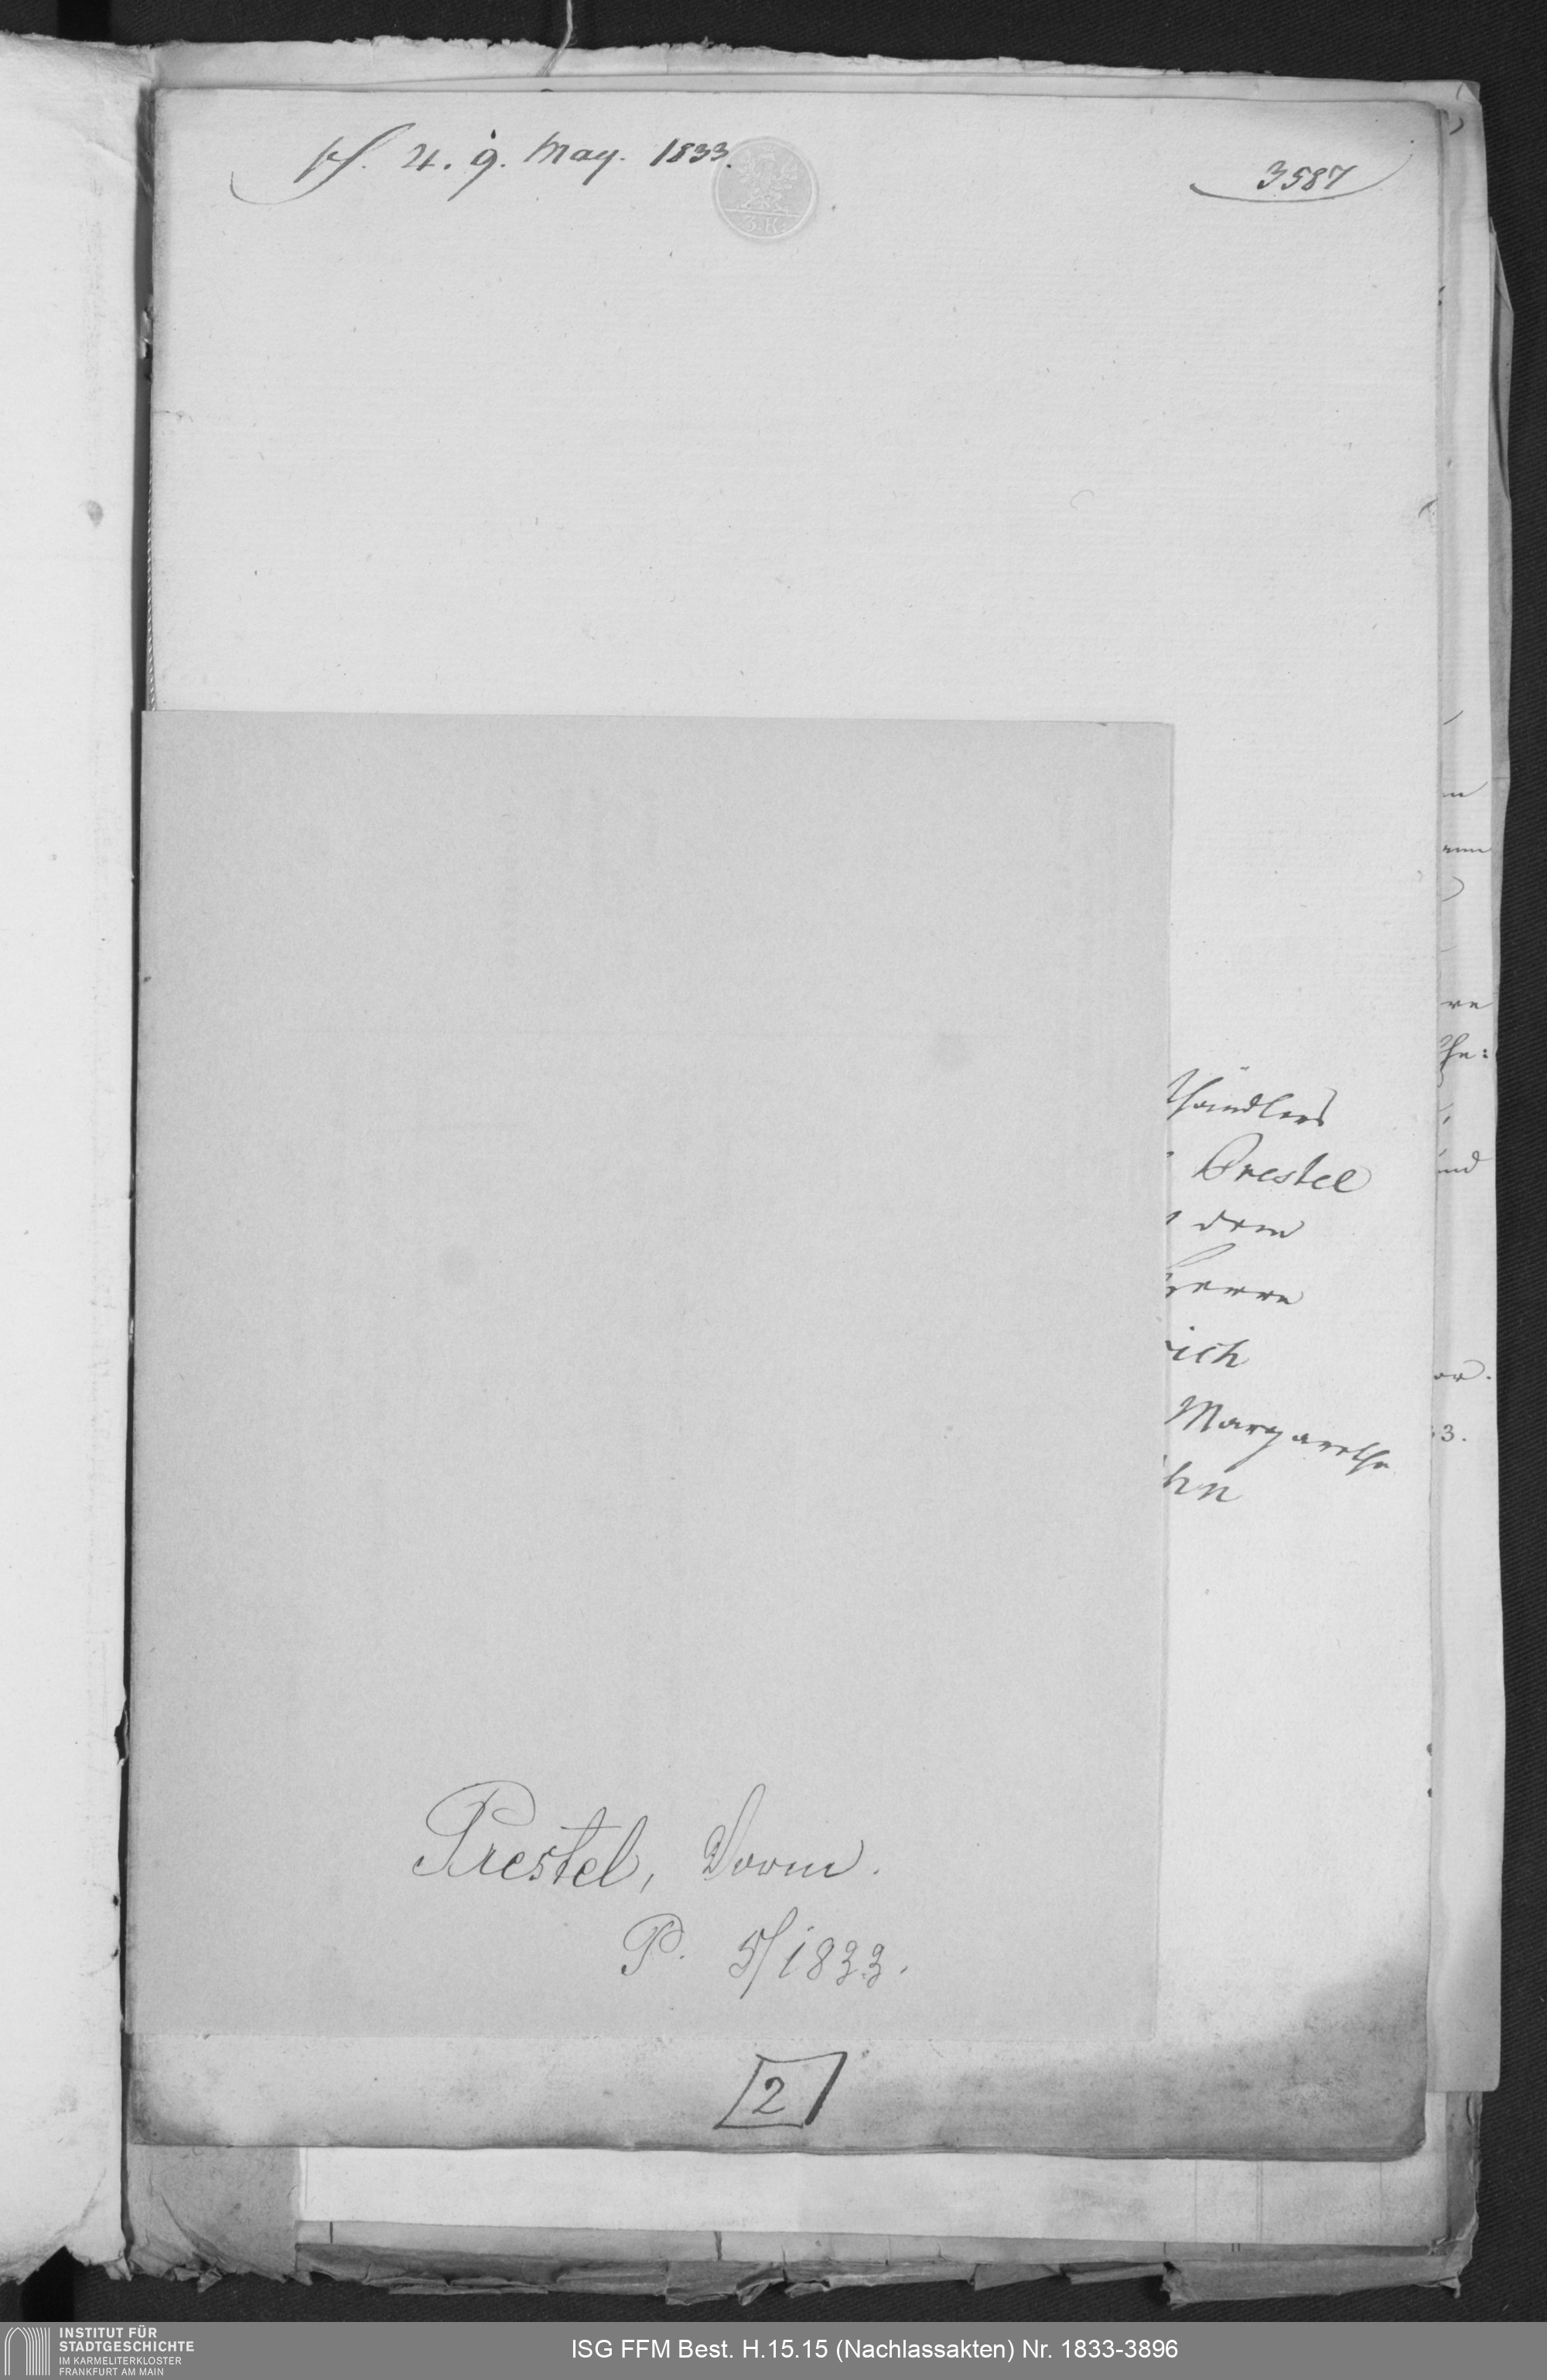 ps. 4. 9. May. 1833.
3587
3.K.
händlers
Prestel
dem
Herrn
ich
Margarethe
hn
re
he:
und
or.
3.
Prestel, Vorm.
P. 5/1833.
2
INSTITUT FÜR
STADTGESCHICHTE
IM KARMELITERKLOSTER
FRANKFURT AM MAIN
ISG FFM Best. H.15.15 (Nachlassakten) Nr. 1833-3896